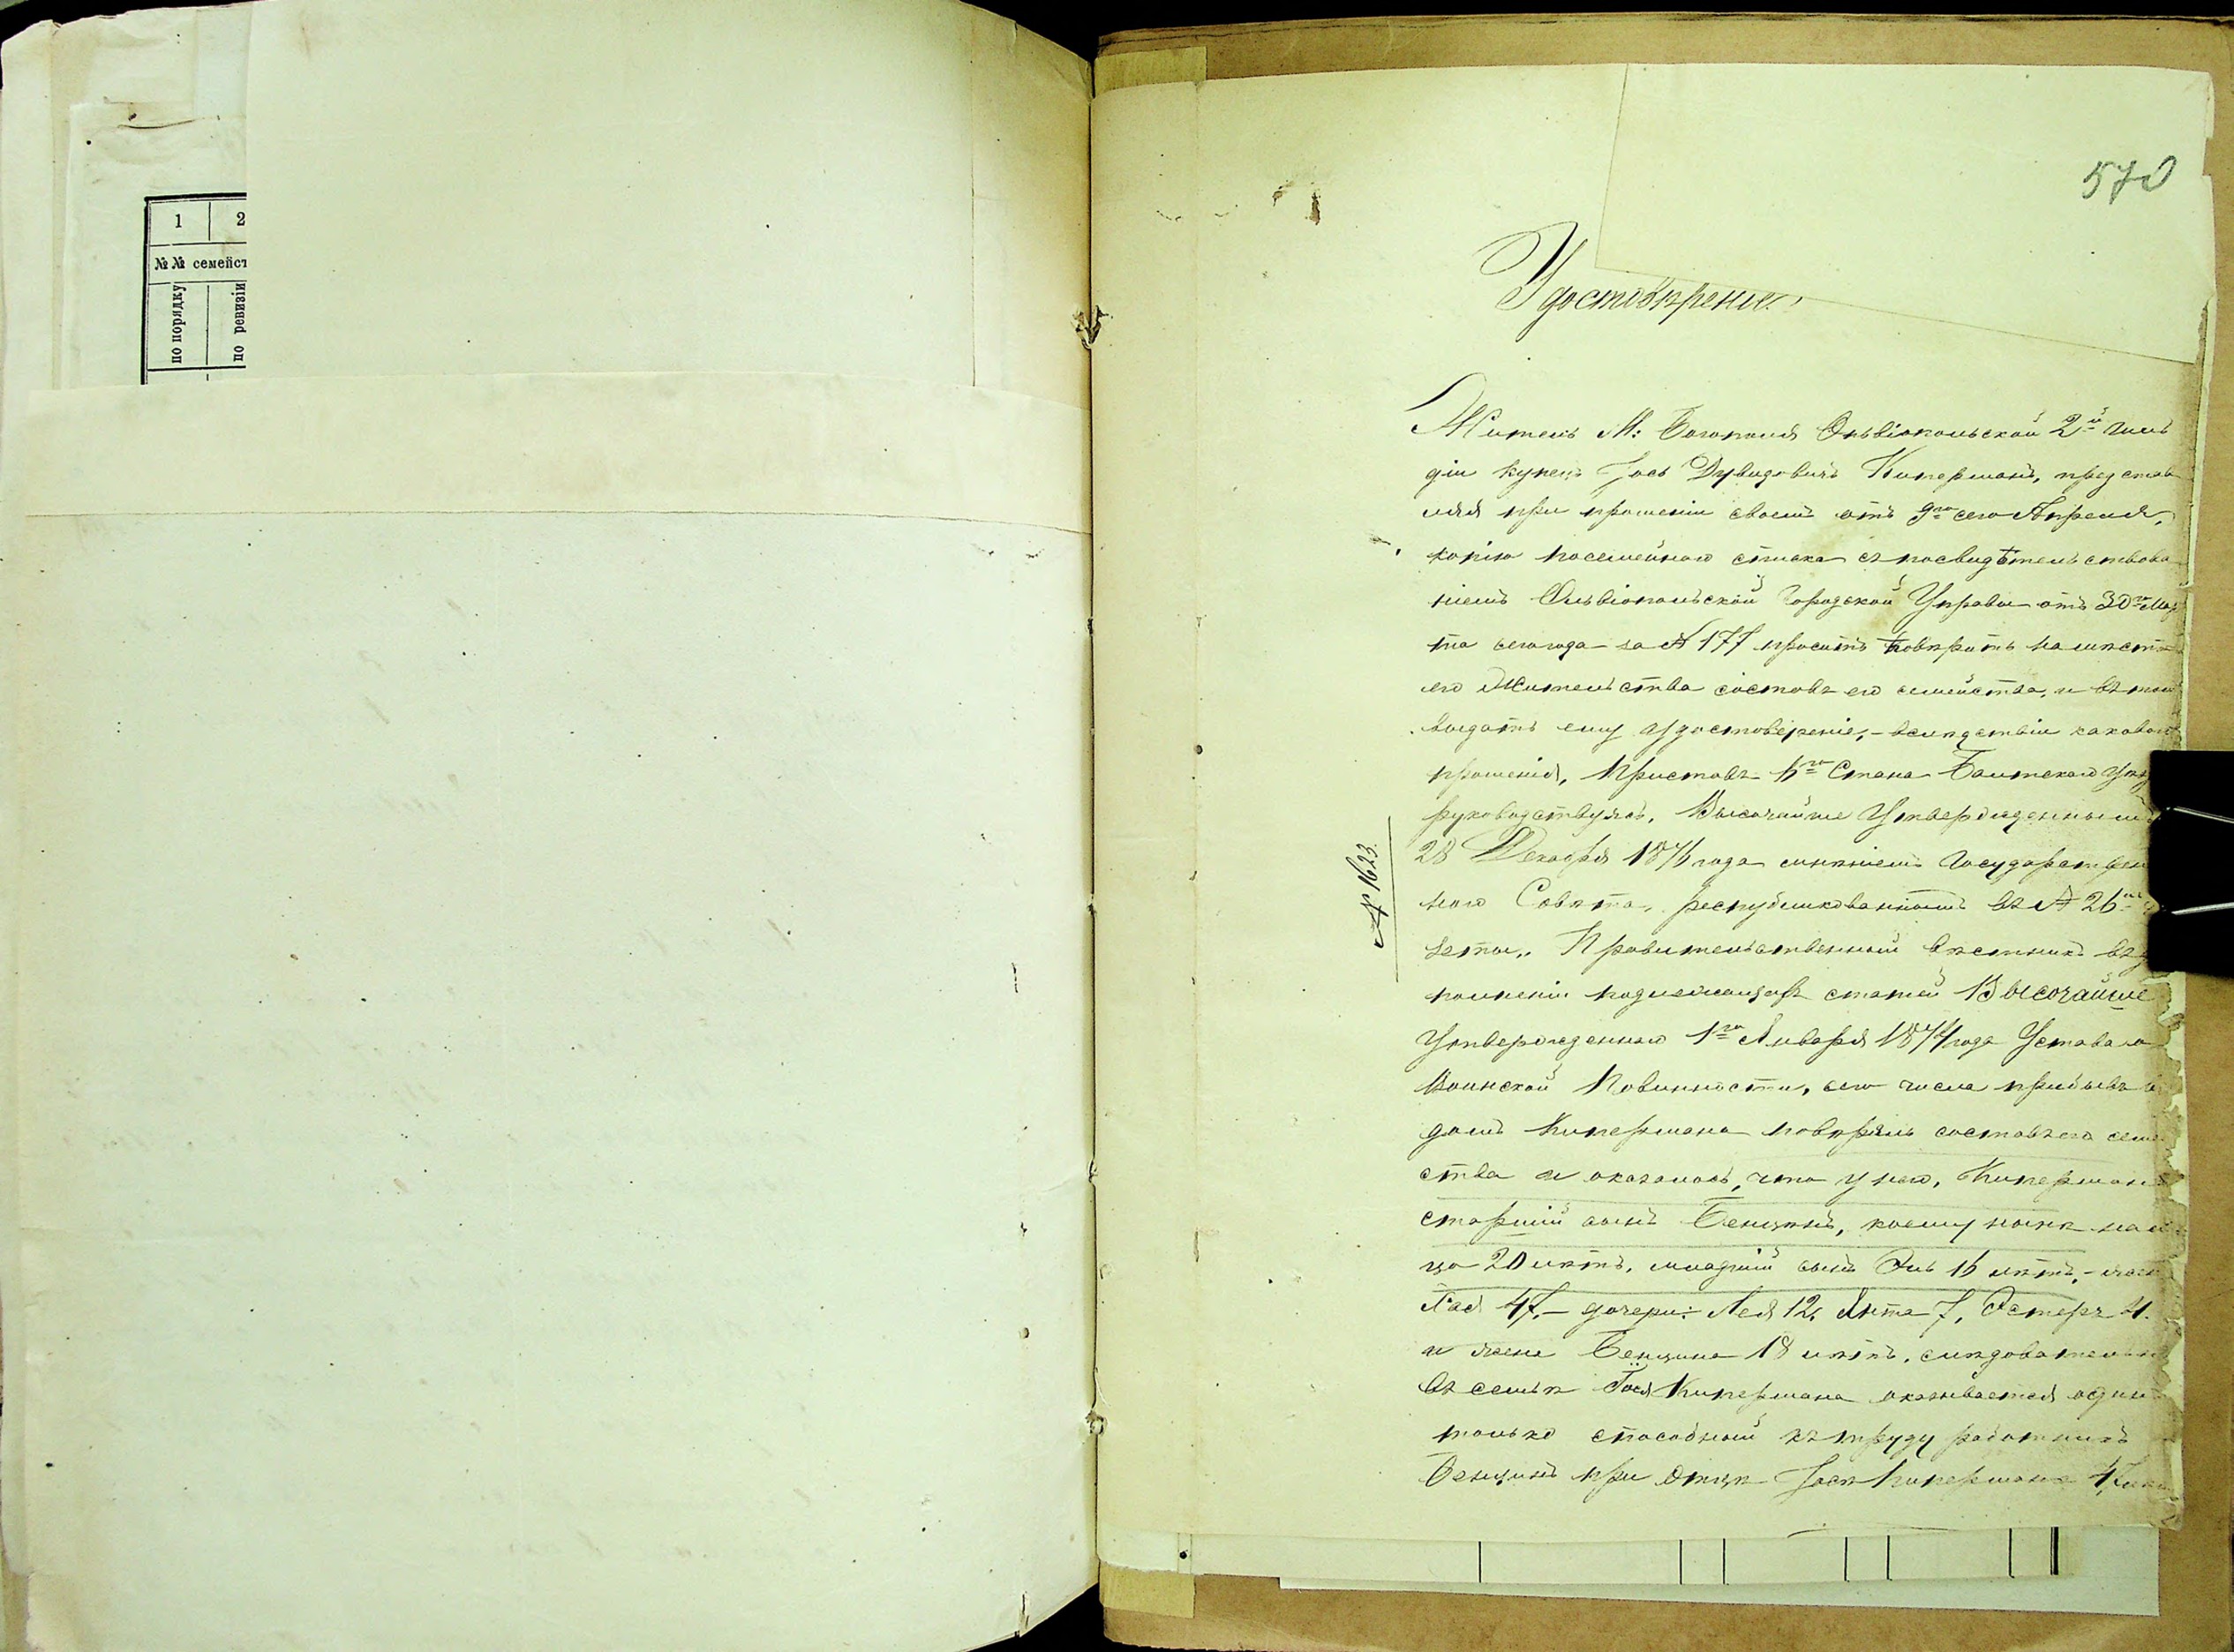 1 2
№№ семейст
по порядку по ревизіи
570
Удостовѣреніе.
Житель М: Богополя Ольвіопольской 2й гиль
діи купец Іось Дувидовичъ Киперманъ, представ
ляя при прошеніи своемъ отъ 9го сего Апреля,
копію посемейнаго списка съ посвидѣтельствова
ніемъ Ольвіопольской Городской Управы отъ 30го Мар
та сего года за № 177 проситъ повѣрить на мѣстѣ
его жительства составъ его семейства, и въ томъ
выдать ему удостоверение,- вслѣдствіи каковаго
прошенія, Приставъ Стана Балтскаго
руководствуясь, Высочайше Утвержденнымъ
28 Декабря года мнѣніемъ Государствен
наго Совѣта, распубликованномъ въ № 26
зеты„ Правительственный вѣстникъ въ
полненіи подлежащихъ статей Высочайше
Утвержденнаго 1го Января 1874 года Устава о
Воинской Повинности, сего числа прибывъ въ
домъ Кипермана повѣрялъ составъ его семей
ства и оказалось, что у него, Кипермана
старшій сынъ Бенціонъ, коему нынѣ на
цо 20 лѣтъ, младшій сынъ Эль 16 лѣтъ,- жена
Хая 47,- дочери: Лея 12, Янта 7, Эстеръ 4.
и жена Бенциона 18 лѣтъ, слѣдовательно
въ семьѣ Іося Кипермана оказывается одинъ
только способный къ труду работникъ
Бенционъ при Отцѣ Іосѣ Киперманѣ
№ 1623.